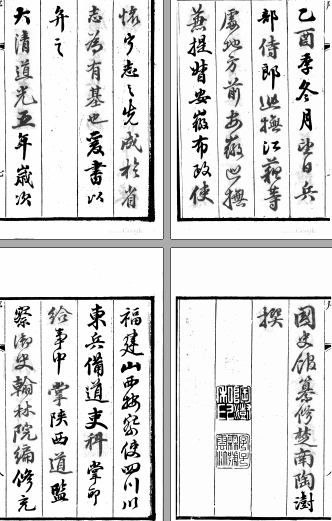 懷寧志之先成於省
志為有基也爰書以
弁之
大清道光五年歲次
乙酉季冬月望日兵
部侍郎巡撫江蘇等
處地方前安徽巡撫
兼提督安徽布政使
福建山西按察使四川川
東兵備道吏科掌印
給事中掌陝西道監
察御史翰林院編修充
國史館纂修楚南陶澍
撰
Google
Google